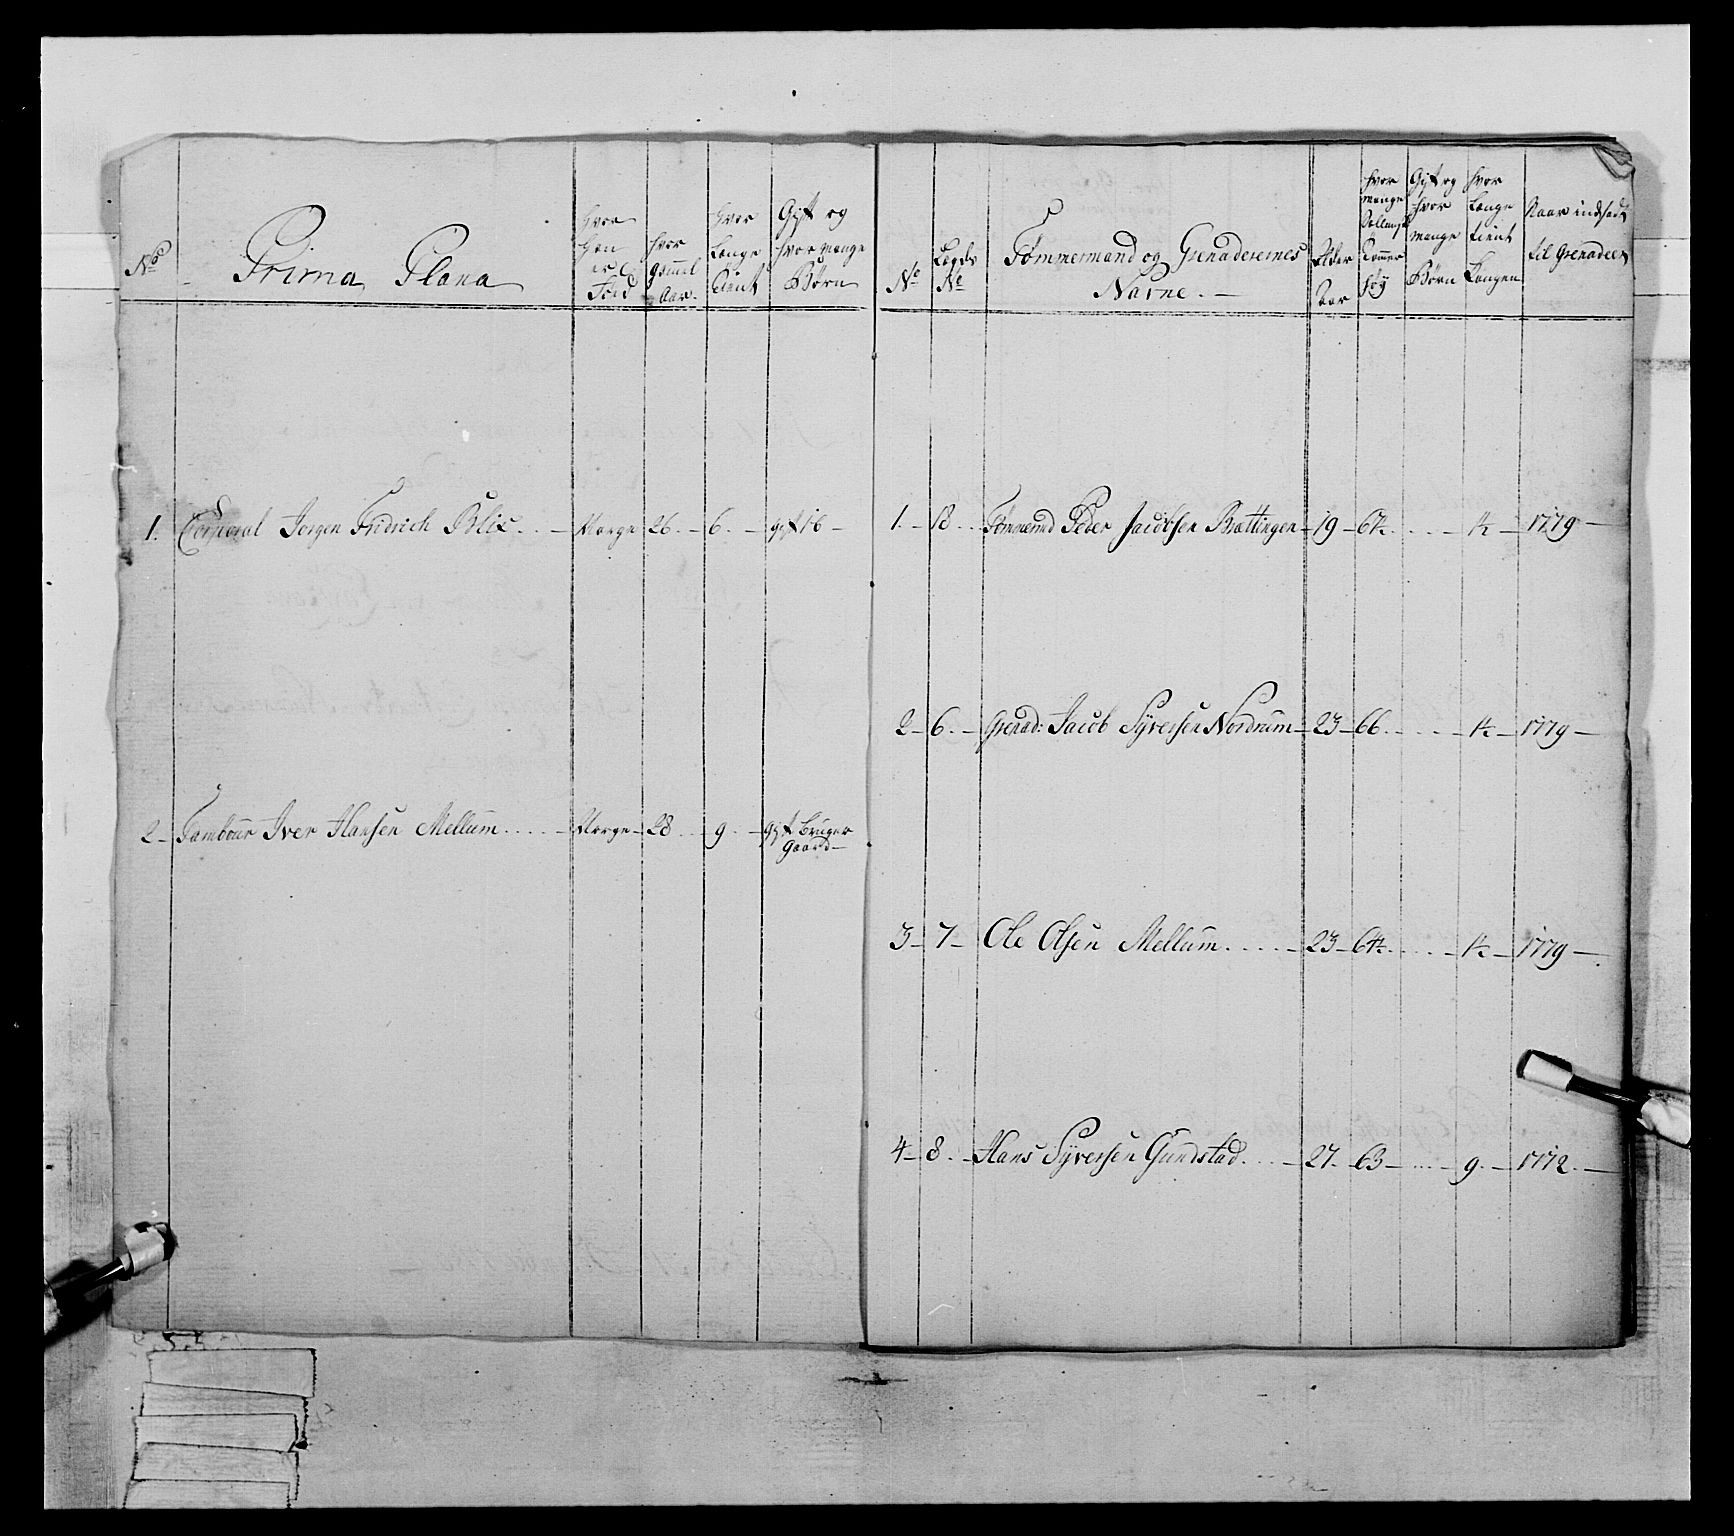 No
Prima Plana
hvor han er Fød
hvor gammel Aar.
hvor Længe tient
Gift og hvor mange Børn
1. Corporal Jørgen Fridrich Blix. . . — Norge 26. — 6. — gift 1 b —
2 — Tambour Iver Hansen Mellum. . . . . — Norge — 28 . . . 9 . — gift bruger
Gaard —
No
Lægds No
Tømmermand og Grenaderernes
Navne. —
Alder Aar
hvor mange
Gift og hvor mange Børn
hvor Længe tient
Naar indsadt til Grenadeer
1. — 18 . . . Tømmermd Peder Jacobsen Brættingen — 19 — 64½ . . . . — 1½ — 1779 —
2 — 6. — Grenad: Jacob Syversen Nordrum — 23 — 66. . . . . — 1½ — 1779 —
3 — 7 — Ole Olsen Mellum. . . . . — 23 — 64½ . . . . — 1½ — 1779 —
4 — 8 . — Hans Syversen Gundstad. . . — 27. — 63 — . . . . — 9. — 1772. —